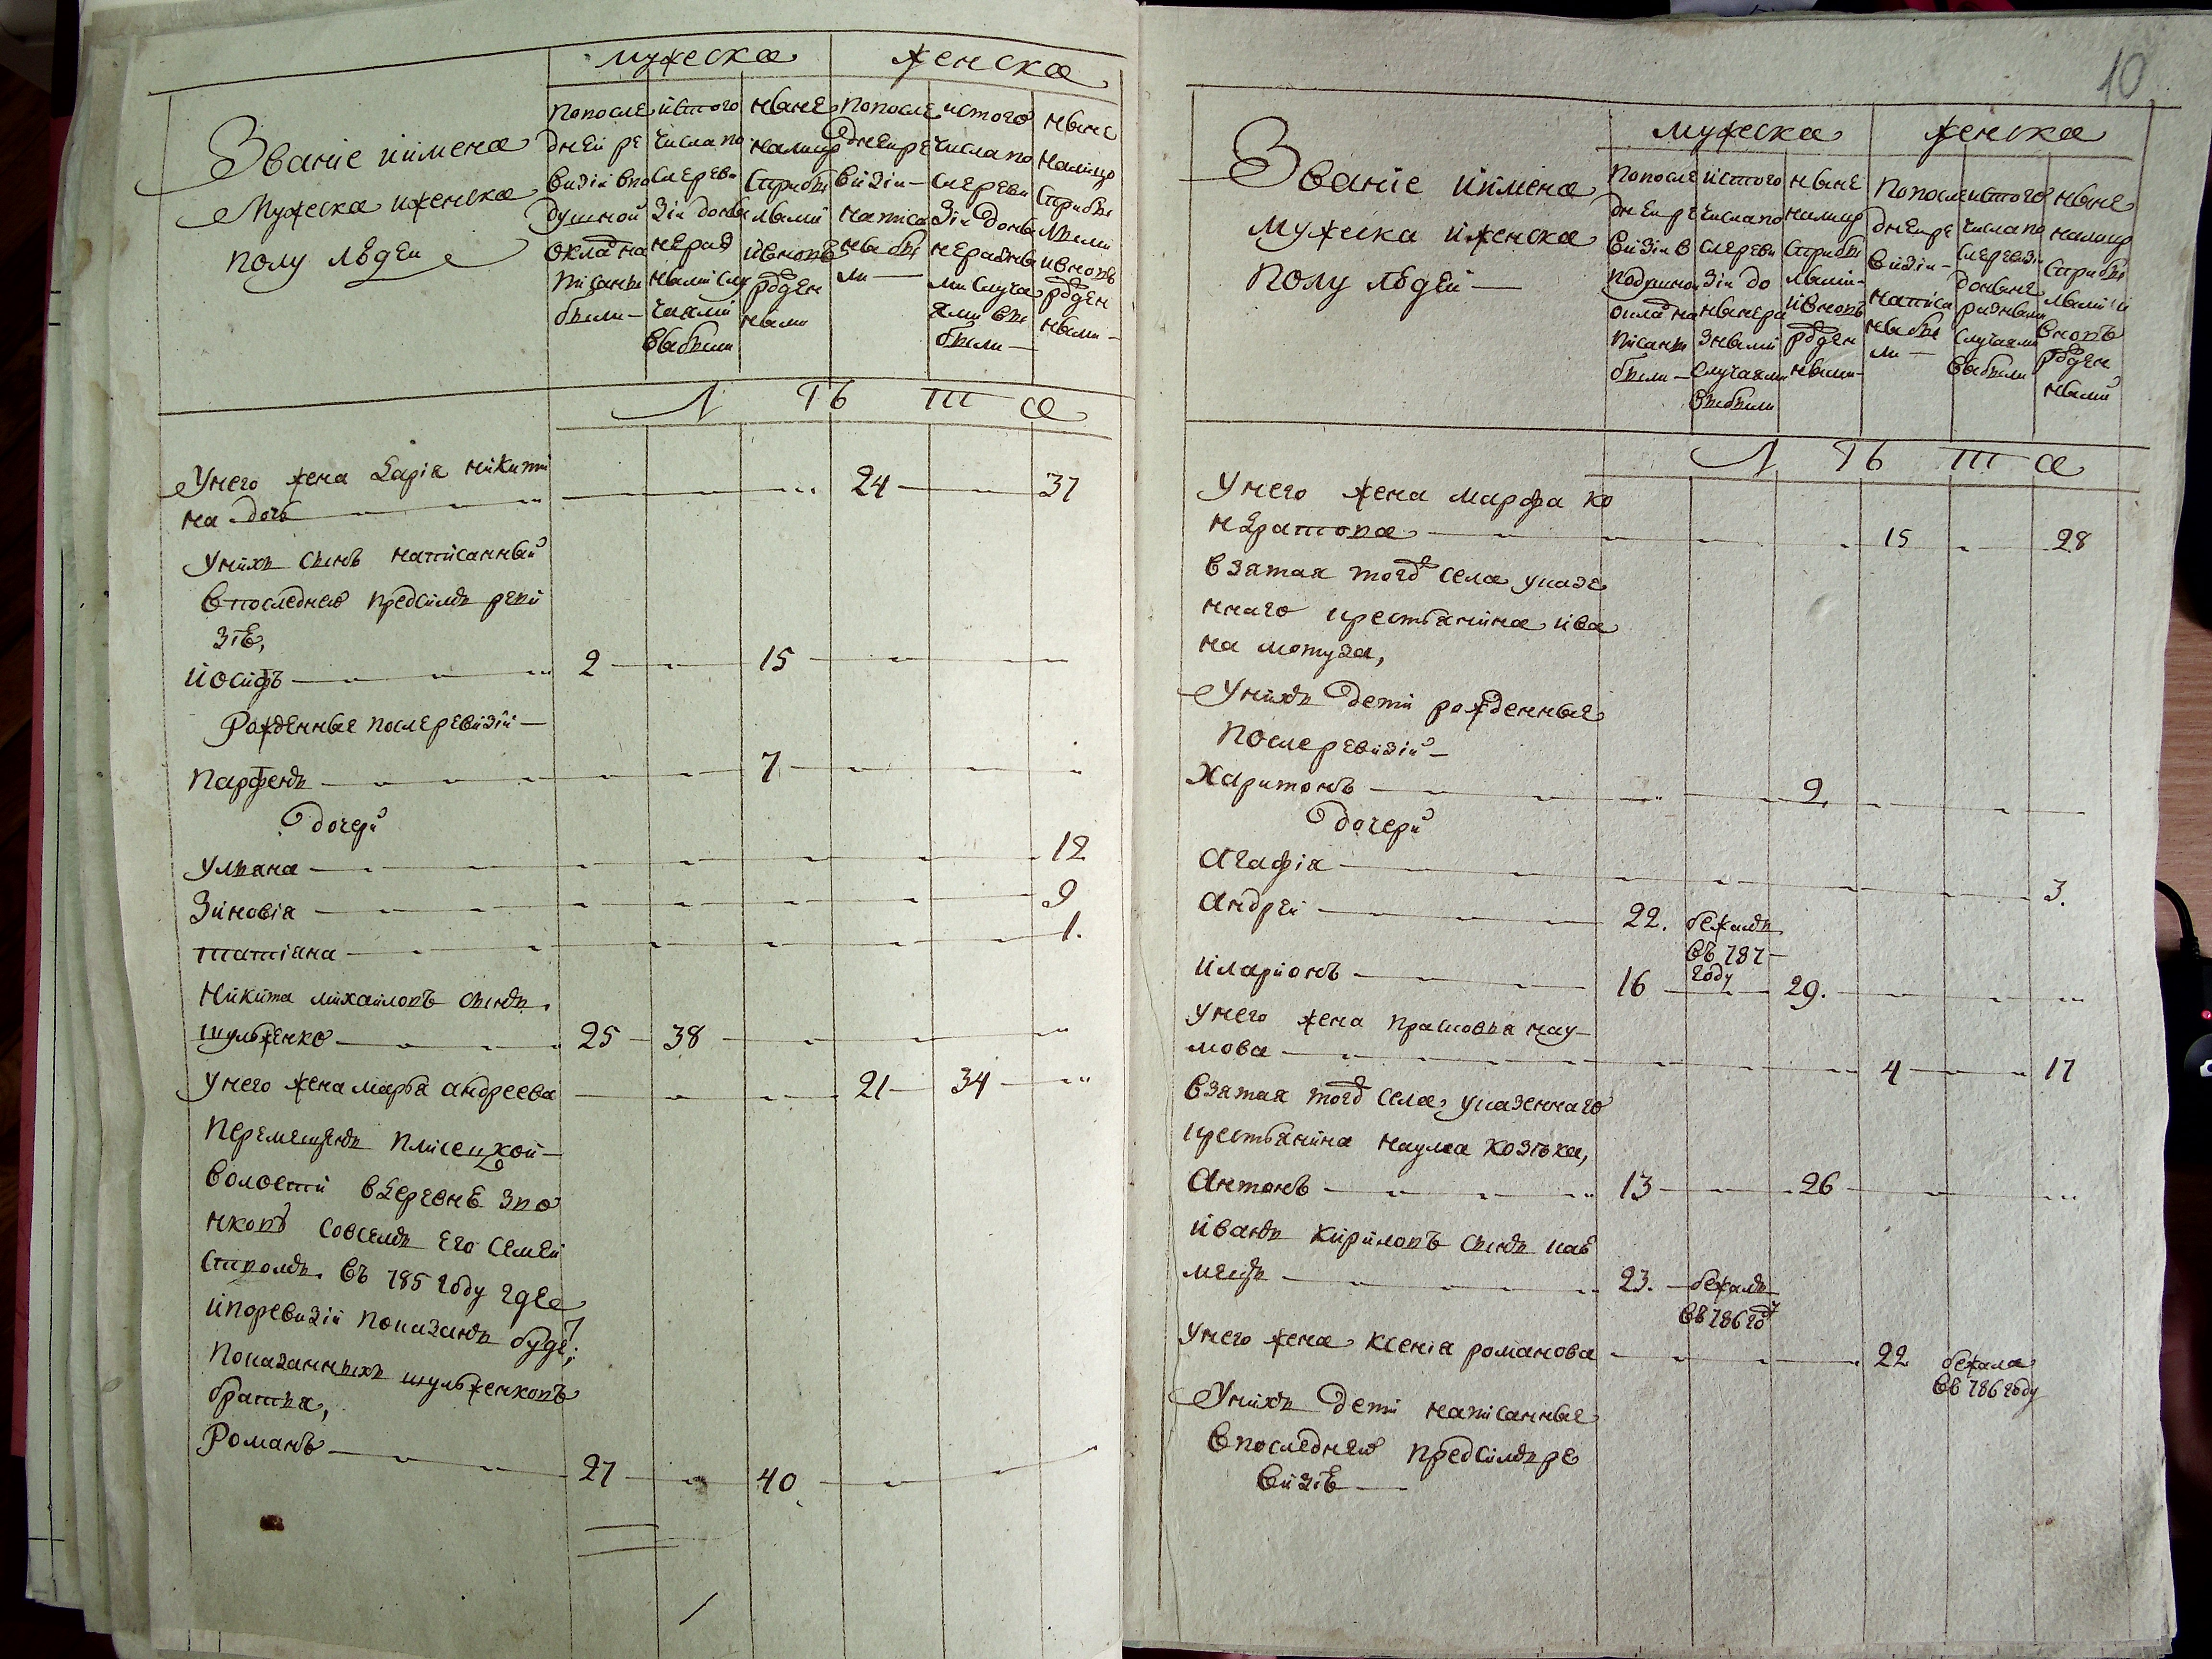 мужеска женска
Званіе иимена
Мужеска иженска
полу людеи
попосле
днеи ре
визіи впо
душной
окла на
писаны
были
истого
числа по
слереви
зіи доны
нераз
ными слу
чаями
выбыли
ныне
налицо
сприбы
лыми
ивновь
рожден
ными
попосле
днеире
визіи
написа
ны бы
ли
истого
числа по
слереви
зіи доны
неразны
ми случа
ями вы
были
ныне
налицо
сприбы
лыми
ивновь
рожден
ными
Л ТЬ Ш А
Унего жена Дарія никити
на дочь 24 37
Унихъ сынъ написанный
впоследнею предсимъ реви
зіѣ,
иосифъ 2 15
Рожденные послеревизіи
парфенъ 7
дочери
ульяна 12
Зиновія 9
татіяна 1.
Никита михаиловъ сынъ
шульженко 25 38
унего жена марья андреева 21 34
перемещенъ плисецкой
волости вдеревнѣ зво
нковъ совсемъ его семей
ствомъ въ 785 году где
ипоревизіи показанъ буде;
показанныхъ шульженковъ
братья,
Романъ 27 40
10
мужеска женска
Званіе иимена
мужеска иженска
полу людей
попосле
днеире
визіи в
подушной
окла на
писаны
были
истого
числа по
слереви
зіи до
нынера
зными
случаями
выбыли
ныне
налицо
сприбы
лыми
ивновь
рожден
ными
попосле
днеире
визіи
написа
ны бы
ли
истого
числа по
слеревизіи
доныне
разными
случаями
выбыли
ныне
налицо
сприбы
лыми и
вновь
рожден
ными
Л ТЬ Ш А
Унего жена марфа ко
ндратова 15 28
взятая тогд села указе
ннаго крестьянина ива
на мотуза,
Унихъ дети рожденные
послеревизіи
Харитонъ 9
дочери
агафія 3.
андрей 22. бежалъ
въ 787
году
иларионъ 16 29.
унего жена прасковья нау
мова 4 17
взятая тогд села указеннаго
крестьянина наума козъка,
антонъ 13 26
иванъ кириловъ сынъ каб
мецъ 23. бежалъ
въ 786 год
унего жена ксенія романова 22 бежала
въ 786 году
Унихъ дети написанные
впоследнею предсимъ ре
визіѣ